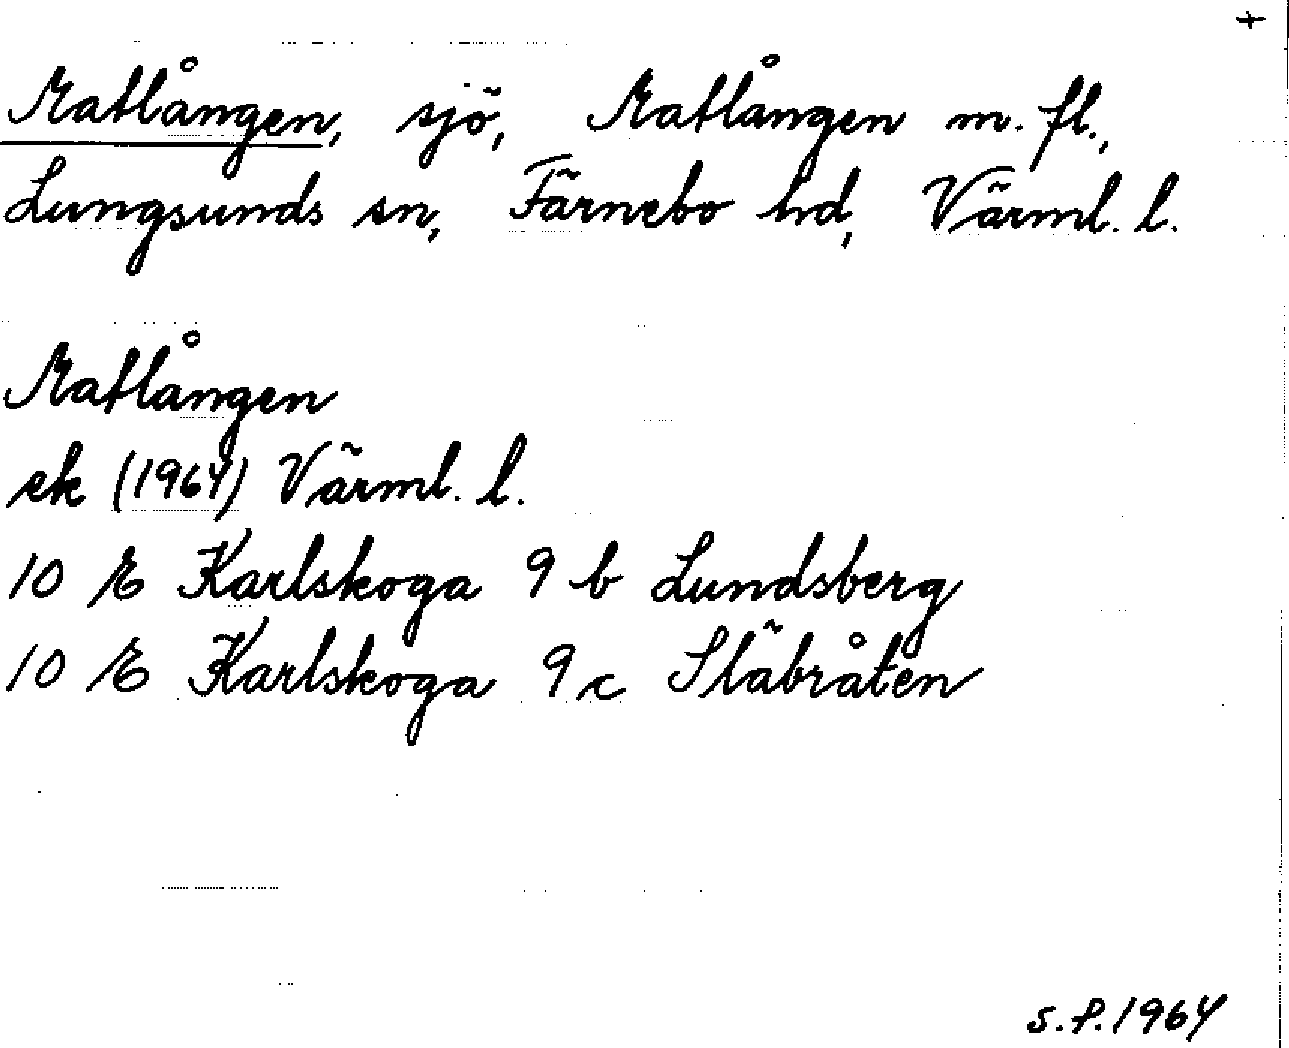 +
Matlången, sjö, Matlången m. fl.,
Lungsunds sn, Färnebo hd, Värml. l.
Matlången
ek (1964) Värml. l.
10 E Karlskoga 9 b Lundsberg
10 E Karlskoga 9 c Släbråten
S.P. 1964